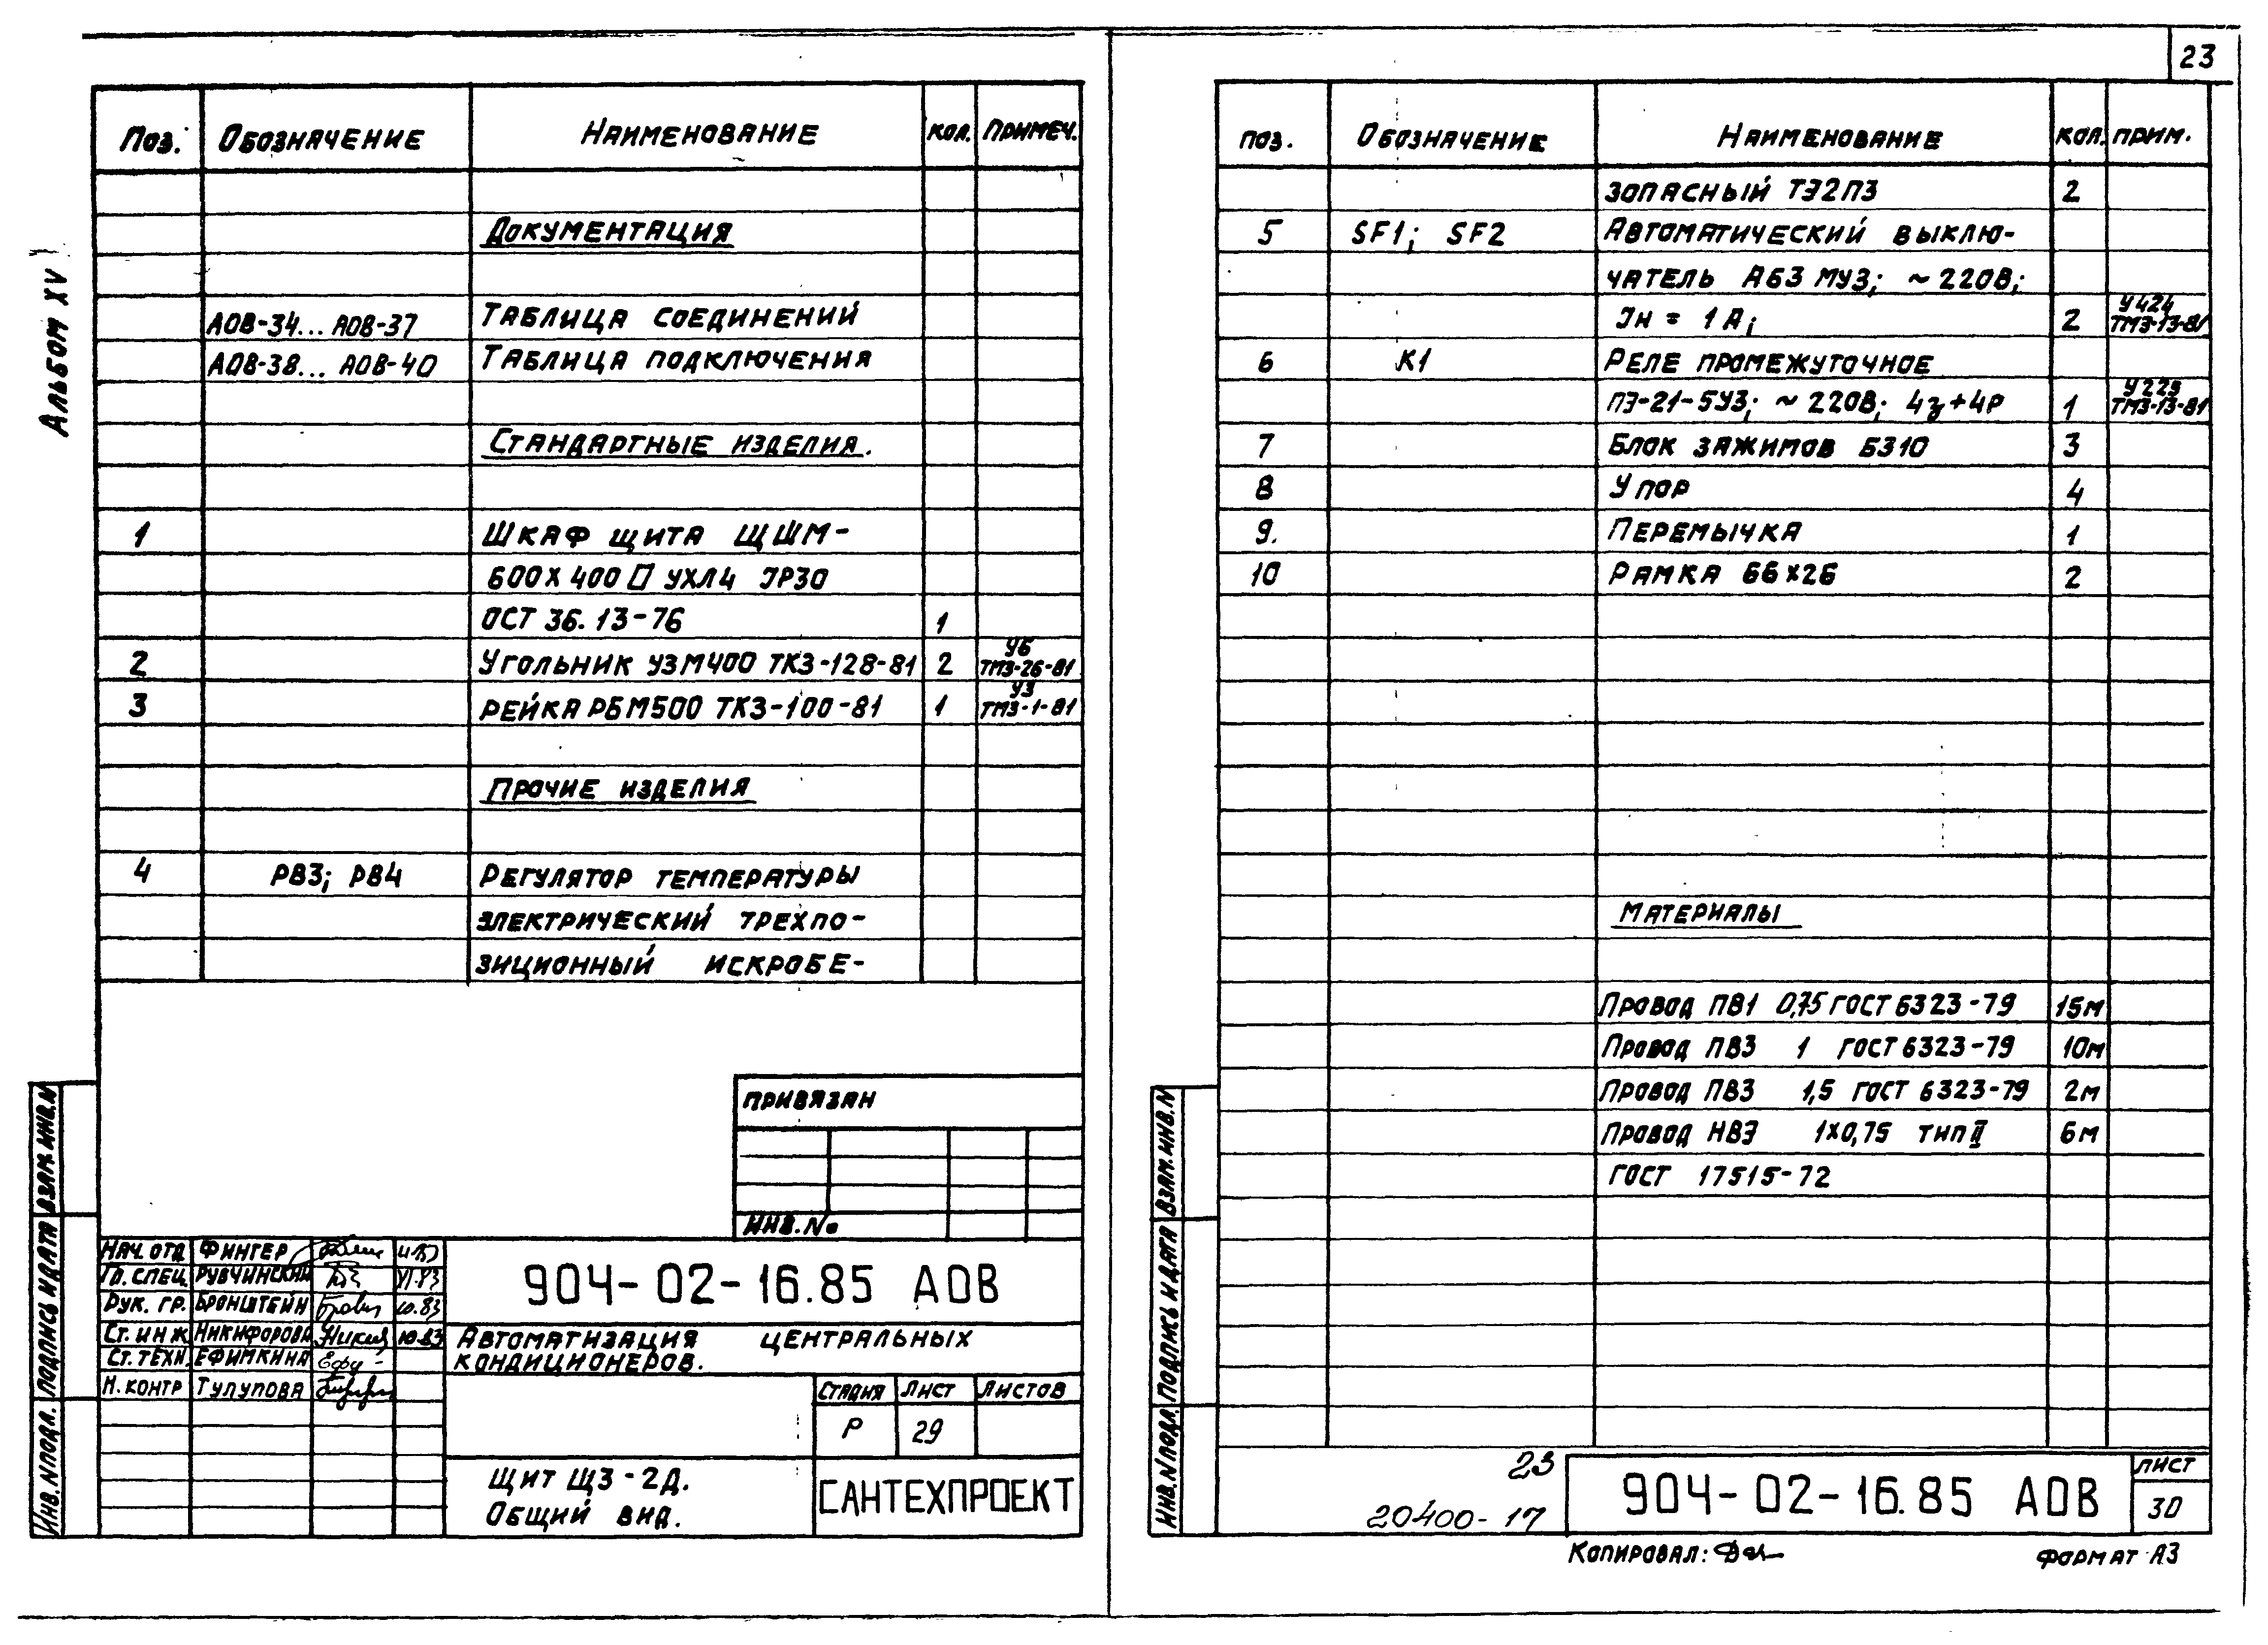 23
Альбом XV
Поз. Обозначение Наименование кол. Примеч.
Документация
АОВ-34... АОВ-37 Таблица соединений
АОВ-38... АОВ-40 Таблица подключения
Стандартные изделия.
1 Шкаф щита ЩШМ-
600х400 УХЛ4 IP30
ОСТ 36.13-76 1
2 Угольник УЗМ400 ТК3-128-81 2 У6 ТМ3-26-81
3 Рейка РБМ500 ТК3-100-81 1 У3 ТМ3-1-81
Прочие изделия
4 РВ3; РВ4 Регулятор температуры
электрический трехпо-
зиционный искробе-
привязан
Инв.№
Нач. отд Фингер
Гл. спец. Рувчинский VI.83
Рук. гр. Бронштейн 10.83
Ст. инж Никифорова 10.83
Ст. техн. Ефимкина
Н. контр Тулупова
904-02-16.85 АОВ
Автоматизация центральных
кондиционеров.
Стадия Лист Листов
Р 29
Щит Щ3-2Д.
Общий вид.
САНТЕХПРОЕКТ
Инв.N подл. Подпись и дата Взам.инв.N
поз. Обозначение Наименование кол. прим.
зопасный ТЭ2П3 2
5 SF1; SF2 Автоматический выклю-
чатель А63 МУ3; ~220В;
Iн = 1А; 2 У424 ТМ3-13-81
6 К1 Реле промежуточное
ПЭ-21-5У3; ~220В; 4з+4р 1 У223 ТМ3-13-81
7 Блок зажимов Б310 3
8 Упор 4
9. Перемычка 1
10 Рамка 66х26 2
Материалы
Провод ПВ1 0,75 ГОСТ 6323-79 15м
Провод ПВ3 1 ГОСТ 6323-79 10м
Провод ПВ3 1,5 ГОСТ 6323-79 2м
Провод НВЭ 1х0,75 тип II 6м
ГОСТ 17515-72
Инв.N подл. Подпись и дата Взам.инв.N
23
20400-17
904-02-16.85 АОВ
Лист
30
Копировал:
Формат А3